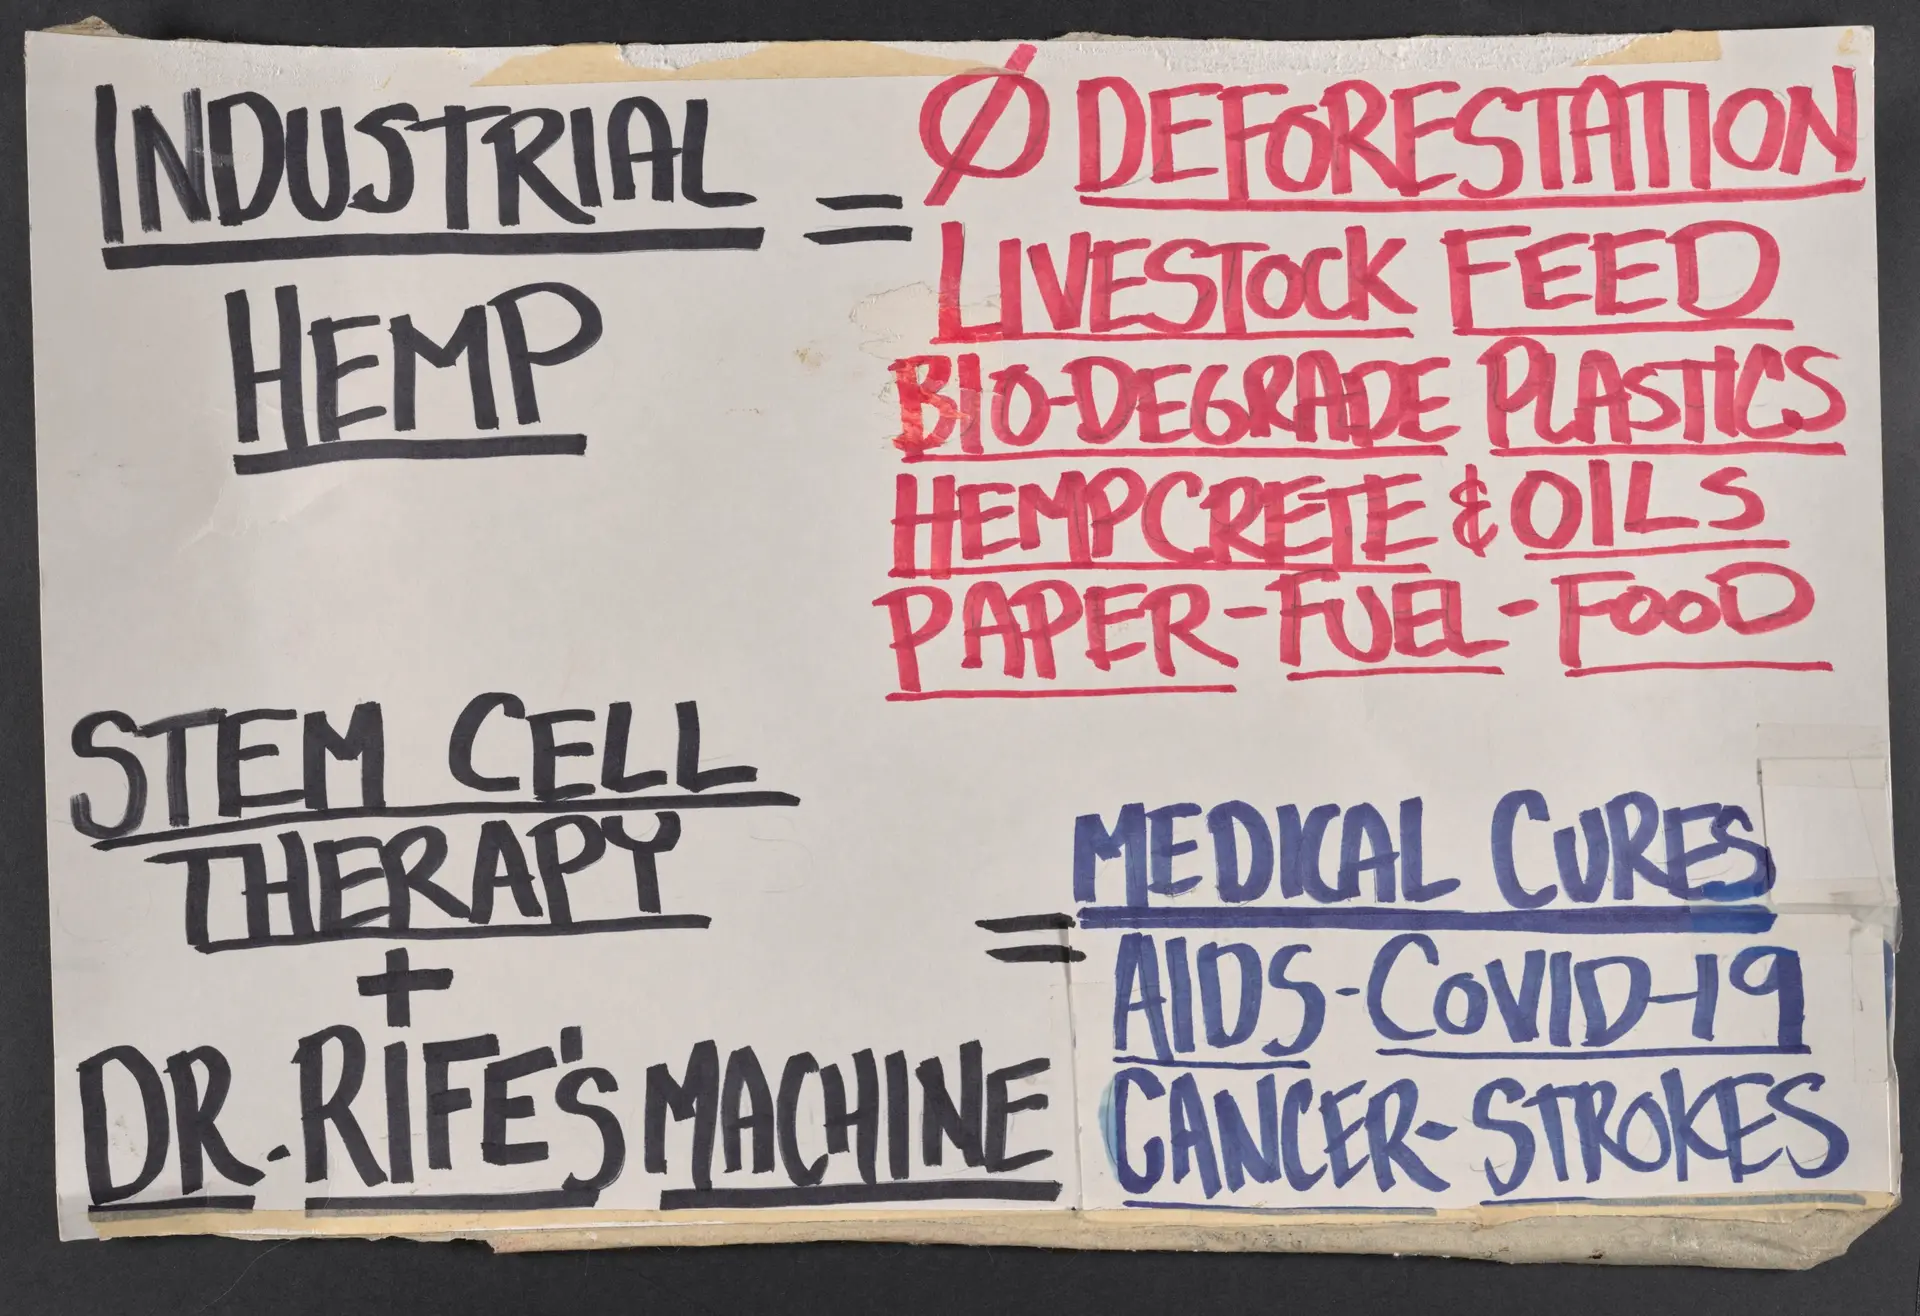 INDUSTRIAL
HEMP
=
Ø DEFORESTATION
LIVESTOCK FEED
BIO-DEGRADE PLASTICS
HEMPCRETE & OILS
PAPER-FUEL-FOOD
STEM CELL
THERAPY
+
DR. RIFE'S MACHINE
=
MEDICAL CURES
AIDS-COVID-19
CANCER-STROKES